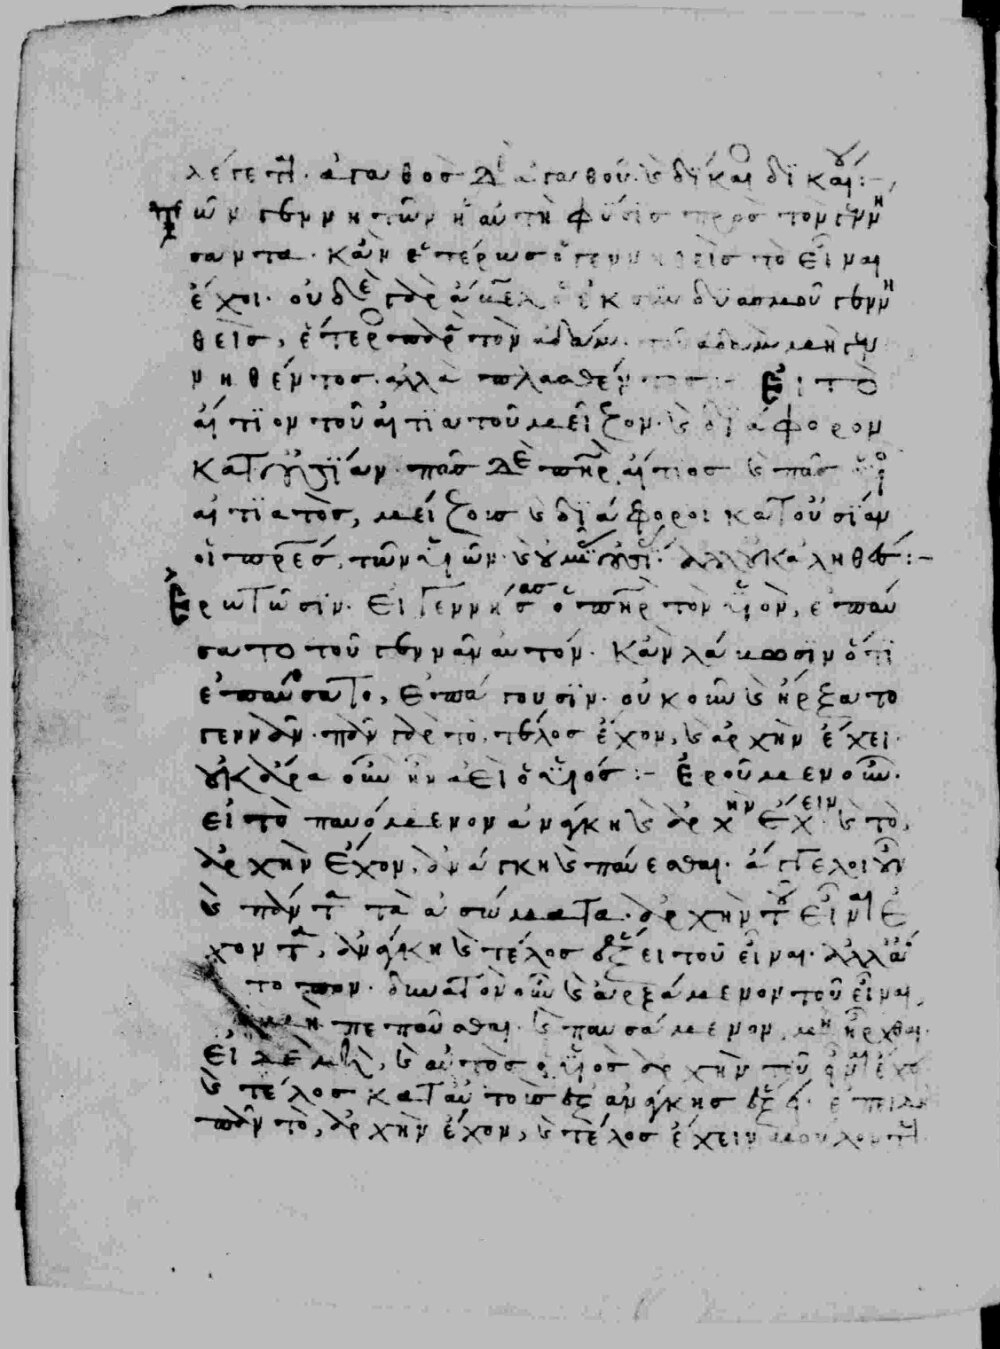 λέγεται· ἀγαθὸς δὲ ἀγαθοῦ καὶ δίκαιος δικαίου:-
Τῶν γεννητῶν ἡ αὐτὴ φύσις πρὸς τὸν γεννή
σαντα· κἂν ἑτέρως ὁ γεννηθεὶς τὸ εἶναι
ἔχοι· οὐδὲ γὰρ ἄβελ ὁ ἐκ συνδυασμοῦ γεννη
θεὶς, ἕτερος παρὰ τὸν ἀδάμ· τοῦ ἀδὰμ μὴ γεν
νηθέντος ἀλλὰ πλασθέντος:- Εἰ τὸ
αἴτιον τοῦ αἰτιατοῦ μεῖζον· καὶ διάφορον
κατ' οὐσίαν· πᾶς δὲ πατὴρ αἴτιος καὶ πᾶς υἱὸς
αἰτιατὸς, μείζους καὶ διάφοροι κατ' οὐσίαν
οἱ πατέρες τῶν υἱῶν· καὶ οὐχ ὁμοούσιοι· ἀλλ' οὐκ ἀληθὲς:-
Ἐρωτῶσιν· εἰ γεννήσας ὁ πατὴρ τὸν υἱὸν, ἐπαύ
σατο τοῦ γεννᾶν αὐτόν· κἂν λάβωσιν ὅτι
ἐπαύσατο, ἐπάγουσιν· οὐκοῦν καὶ ἤρξατο
γεννᾶν· πᾶν γὰρ τὸ τέλος ἔχον, καὶ ἀρχὴν ἔχει·
οὐκ ἄρα οὖν ἦν ἀεὶ ὁ υἱός:- Ἐροῦμεν οὖν·
εἰ τὸ παυόμενον ἀνάγκη καὶ ἀρχὴν ἔχειν, καὶ τὸ
ἀρχὴν ἔχον, ἀνάγκη καὶ παύεσθαι· ἄγγελοι οὖν
καὶ πάντα τὰ ἀσώματα ἀρχὴν τοῦ εἶναι ἔ
χοντα, ἀνάγκη καὶ τέλος ἕξει τοῦ εἶναι· ἀλλ' ἄ
τοπον· δυνατὸν οὖν καὶ ἀρξάμενον τοῦ εἶναι,
μὴ πεπαῦσθαι· καὶ παυσάμενον, μὴ ἦρχθαι·
εἰ δὲ μὴ, καὶ αὐτὸς ὁ υἱὸς ἀρχὴν τοῦ εἶναι ἔχων
καὶ τέλος κατ' αὐτοὺς ἐξ ἀνάγκης ἕξει·
πᾶν τὸ ἀρχὴν ἔχον, καὶ τέλος ἔχειν βούλονται